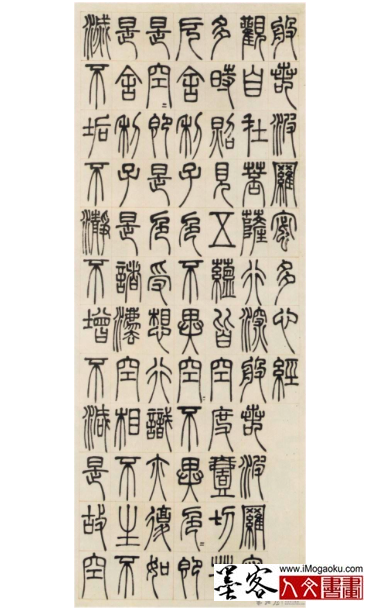 般若波羅蜜多心經
觀自在菩薩行深般若波羅蜜
多時照見五蘊皆空度壹切苦
厄舍利子色不異空〻不異色〻即
是空〻即是色受想行識亦復如
是舍利子是諸法空相不生不
滅不垢不瀞不增不減是故空
www.iMogaoku.com
墨客人文書畫